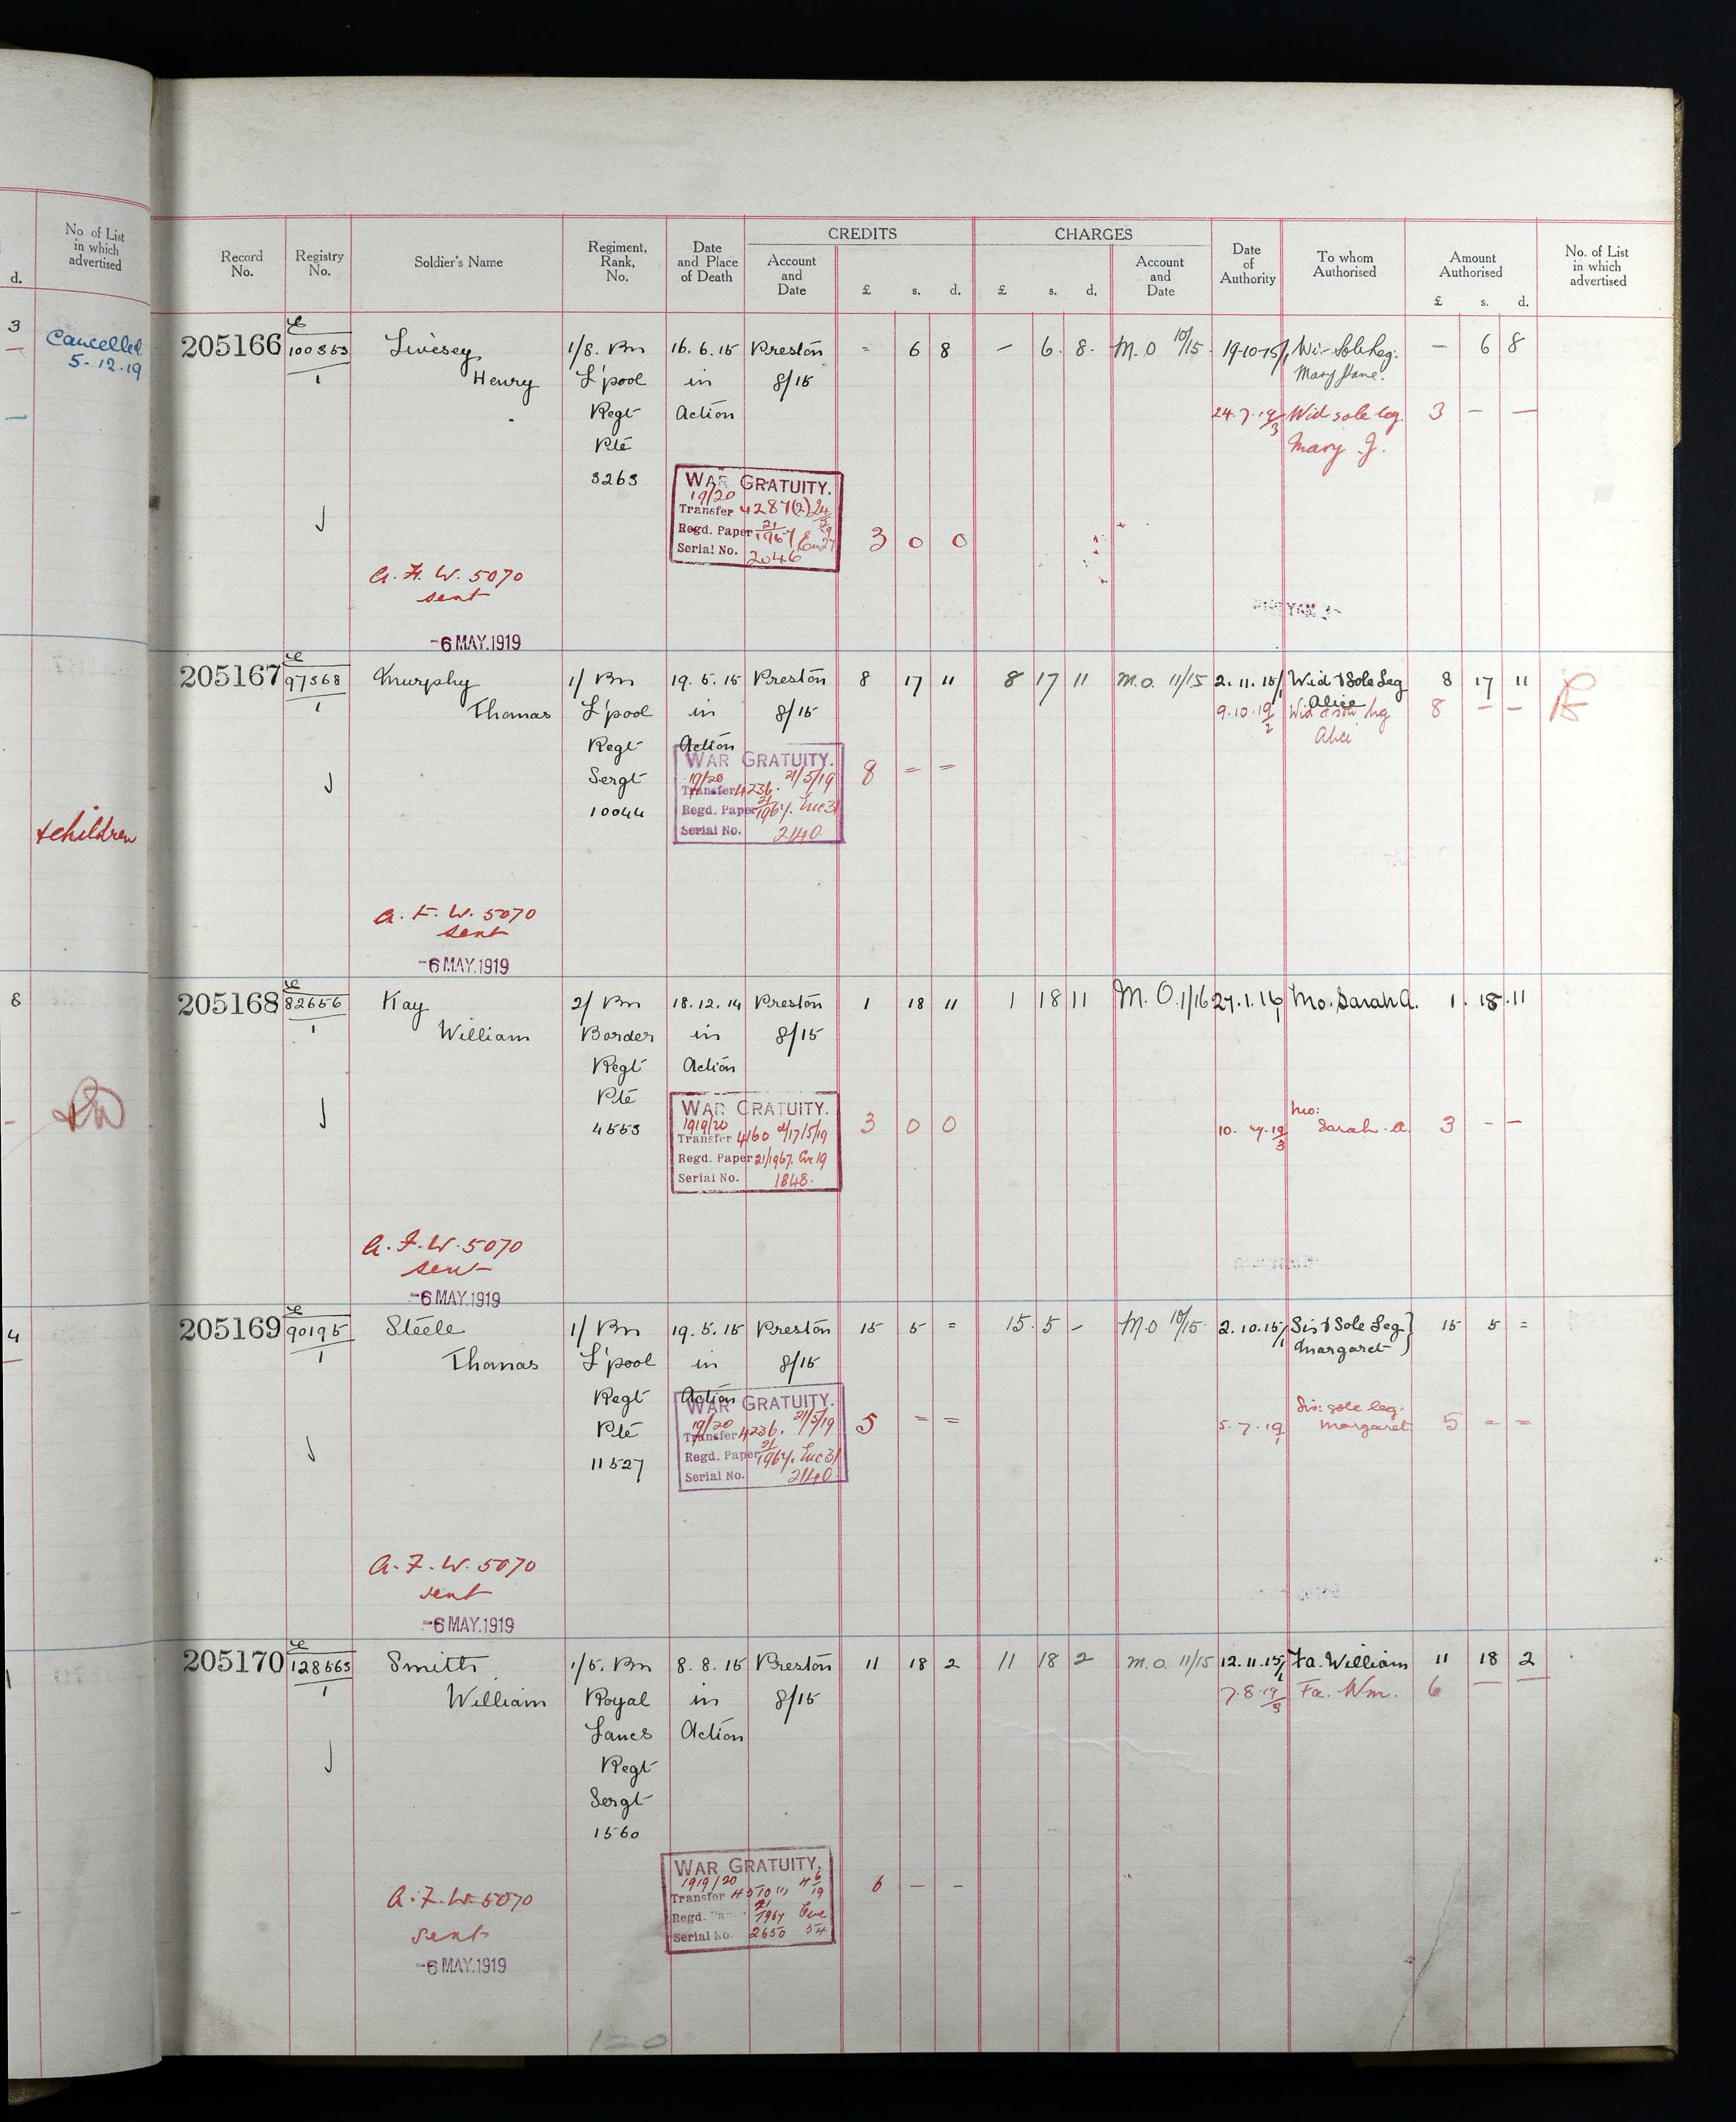 d.
No of List
in which
advertised
3
Cancelled
5-12.19
&children
8
4
Record
No.
Registry
No.
Soldier's Name
Regiment,
Rank,
No.
Date
and Place
of Death
CREDITS
Account
and
Date
£ s. d.
CHARGES
£ s. d.
Account
and
Date
Date
of
Authority
To whom
Authorised
Amount
Authorised
£ s. d.
No. of List
in which
advertised
205166 E 100353 Livesey 1/8. Bn 16.6.15 Preston = 6 8 - 6. 8. M.O 10/15 19-10-15/1 Wi- Sole Leg. - 6 8
1 Henry L'pool in 8/15 Mary Jane.
Regt Action 24.7.19/3 Wid sole leg. 3 - -
Pte Mary J.
3263
WAR GRATUITY.
19/20
Transfer 4287(2)
Regd. Paper 21/1967
Serial No. 2046
3 0 0
A. F. W. 5070
sent
-6 MAY.1919
205167 E 97368 Murphy 1/ Bn 19.5.15 Preston 8 17 11 8 17 11 M.O. 11/15 2.11.15/1 Wid & Sole Leg 8 17 11
1 Thomas L'pool in 8/15 Alice
9.10.19/2 Wid & sole leg 8 - -
Alice
Regt Action
Sergt
10044
WAR GRATUITY.
19/20 21/5/19
Transfer 4236.
Regd. Paper 21/1967. Eve 31
Serial No. 2140
8 = =
A. F. W. 5070
sent
-6 MAY.1919
205168 E 82656 Kay 2/ Bn 18.12.14 Preston 1 18 11 1 18 11 M.O. 1/16 27.1.16/1 Mo. Sarah A. 1. 18.11
1 William Border in 8/15
Regt Action
Pte
4553
WAR GRATUITY.
1919/20
Transfer 4160 17/5/19
Regd. Paper 21/1967. Eve 19
Serial No. 1848.
3 0 0
10. 7.19/3 Mo: Sarah. A. 3 - -
A. F. W. 5070
sent
-6 MAY.1919
205169 E 90195 Steele 1/ Bn 19.5.15 Preston 15 5 = 15. 5 - M.O 10/15 2.10.15/1 Sis & Sole Leg } 15 5 =
1 Thomas L'pool in 8/15 Margaret
Regt Action
Pte
11527
WAR GRATUITY.
19/20 21/5/19
Transfer 4236.
Regd. Paper 21/1967. Eve 31
Serial No. 2140
5 = =
5.7.19/1 Sis: sole leg. Margaret 5 = =
A. F. W. 5070
sent
-6 MAY.1919
205170 E 128563 Smith 1/5. Bn 8.8.15 Preston 11 18 2 11 18 2 M.O. 11/15 12.11.15/1 Fa. William 11 18 2
1 William Royal in 8/15 7.8.19/3 Fa. Wm. 6 - -
Lancs Action
Regt
Sergt
1560
WAR GRATUITY.
1919/20
Transfer 4570 4/6/19
Regd. 21/1967 Eve
Serial No. 2650 54
6 - -
A. F. W. 5070
sent
-6 MAY.1919
120